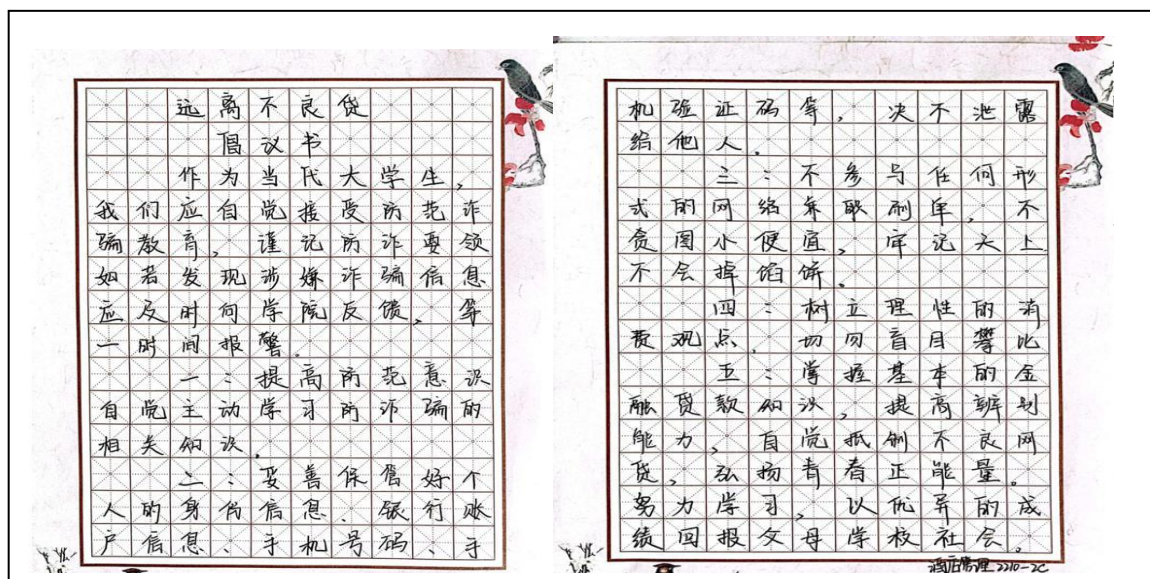 远离不良贷
倡议书
作为当代大学生,
我们应自觉接受防范诈
骗教育,谨记防诈要领
如若发现涉嫌诈骗信息
应及时向学院反馈,第
一时间报警。
一:提高防范意识
自觉主动学习防诈骗的
相关知识。
二:妥善保管好个
人的身份信息、银行账
户信息、手机号码、手
机验证码等,决不泄露
给他人。
三:不参与任何形
式的网络兼职刷单,不
贪图小便宜,牢记天上
不会掉馅饼。
四:树立理性的消
费观点,切勿盲目攀比
五:掌握基本的金
融贷款知识,提高辨别
能力,自觉抵制不良网
贷,弘扬青春正能量。
努力学习,以优异的成
绩回报父母学校社会。
酒店管理2210-2C